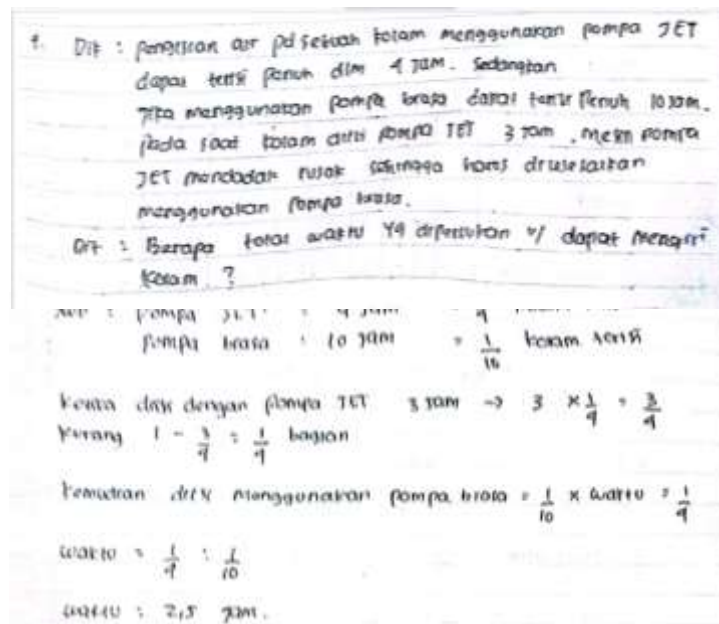 1. Dik : pengisian air pd sebuah kolam menggunakan pompa JET
dapat terisi penuh dlm 4 jam. Sedangkan
jika menggunakan pompa biasa dapat terisi penuh 10 jam.
pada saat kolam diisi pompa JET 3 jam, mesin pompa
JET mendadak rusak sehingga harus diselesaikan
menggunakan pompa biasa.
Dit : Berapa total waktu yg diperlukan u/ dapat mengisi
kolam ?
pompa JET : 4 jam
pompa biasa : 10 jam = 1/10 kolam terisi
Ketika diisi dengan pompa JET 3 jam → 3 × 1/4 = 3/4
Kurang 1 - 3/4 = 1/4 bagian
Kemudian diisi menggunakan pompa biasa = 1/10 × waktu = 1/4
waktu = 1/4 : 1/10
waktu = 2,5 jam.